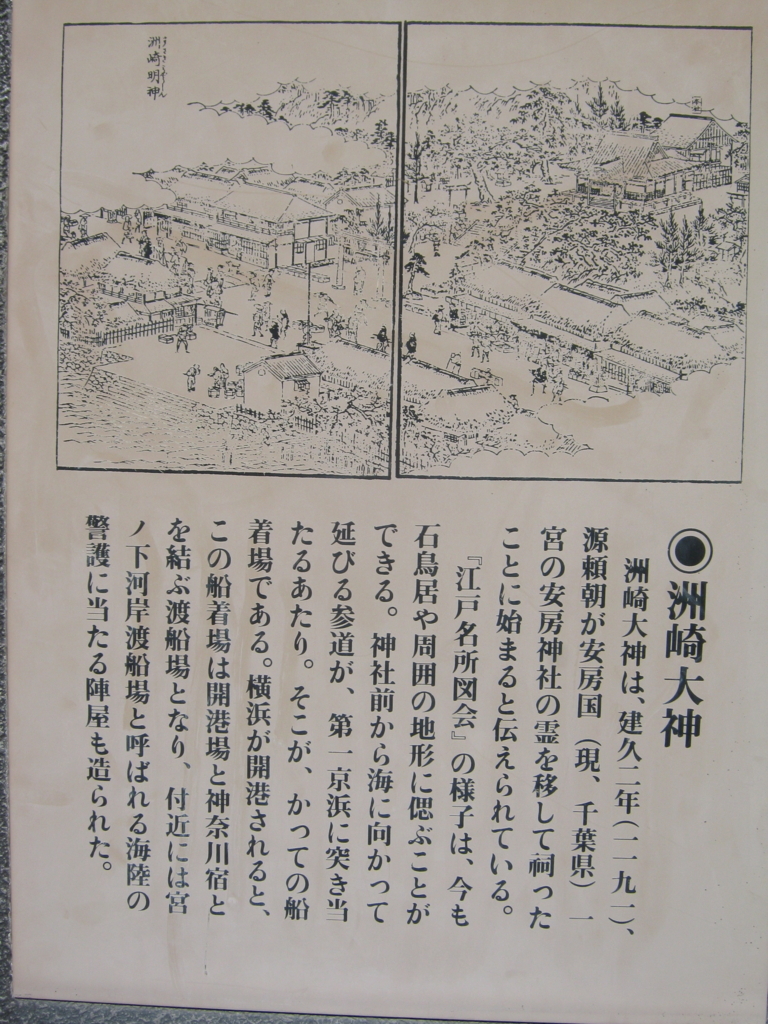 洲崎明神
◉洲崎大神
洲崎大神は、建久二年(一一九一)、
源頼朝が安房国(現、千葉県)一
宮の安房神社の霊を移して祠った
ことに始まると伝えられている。
『江戸名所図会』の様子は、今も
石鳥居や周囲の地形に偲ぶことが
できる。神社前から海に向かって
延びる参道が、第一京浜に突き当
たるあたり。そこが、かつての船
着場である。横浜が開港されると、
この船着場は開港場と神奈川宿と
を結ぶ渡船場となり、付近には宮
ノ下河岸渡船場と呼ばれる海陸の
警護に当たる陣屋も造られた。